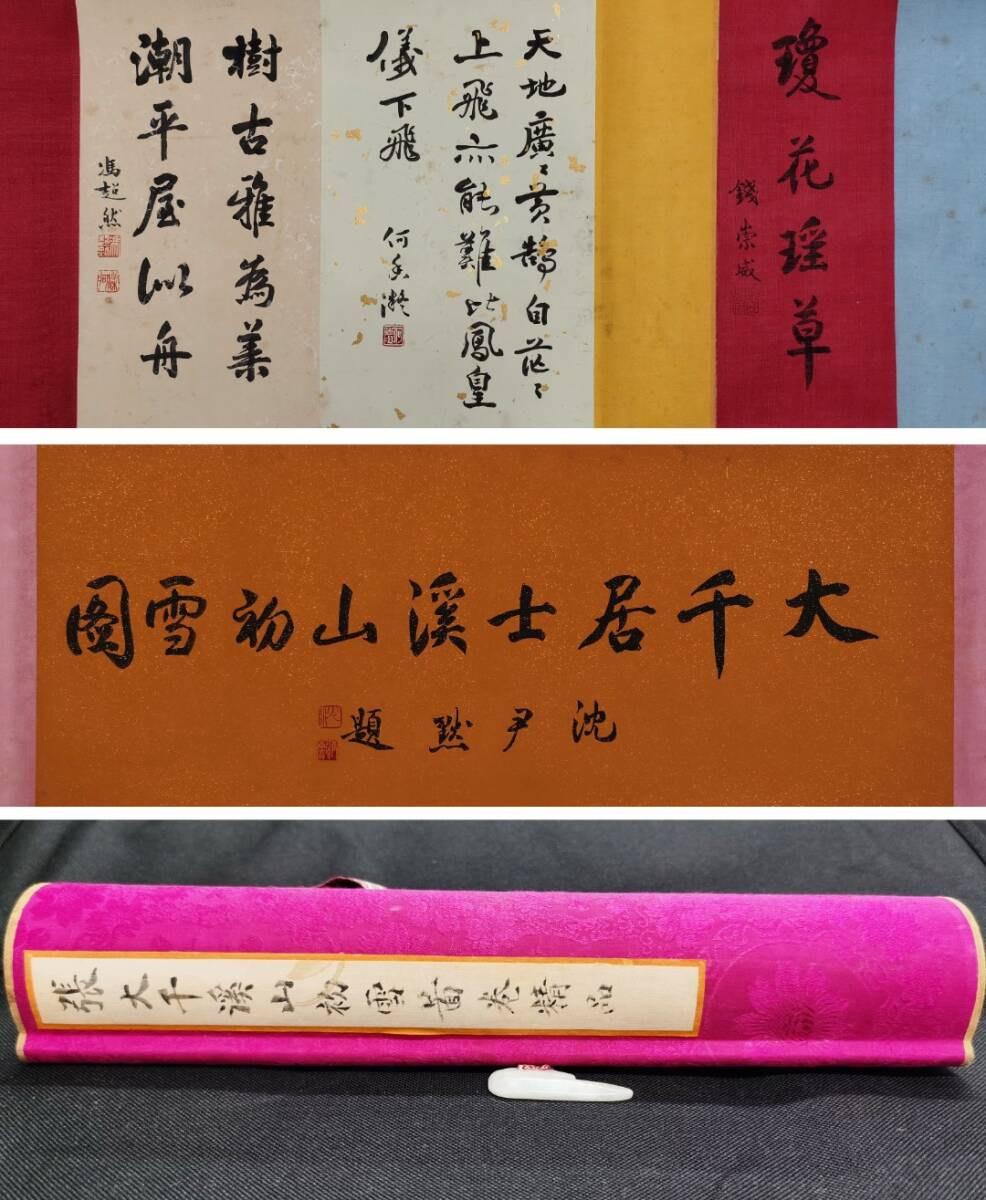 瓊花瑶草
錢崇威
天地廣〻黃鵠自茫〻
上飛亦能難比鳳皇
儀下飛
何香凝
樹古雅為葉
潮平屋似舟
馮超然
大千居士溪山初雪圖
沈尹默題
張大千溪山初雪啚卷精品